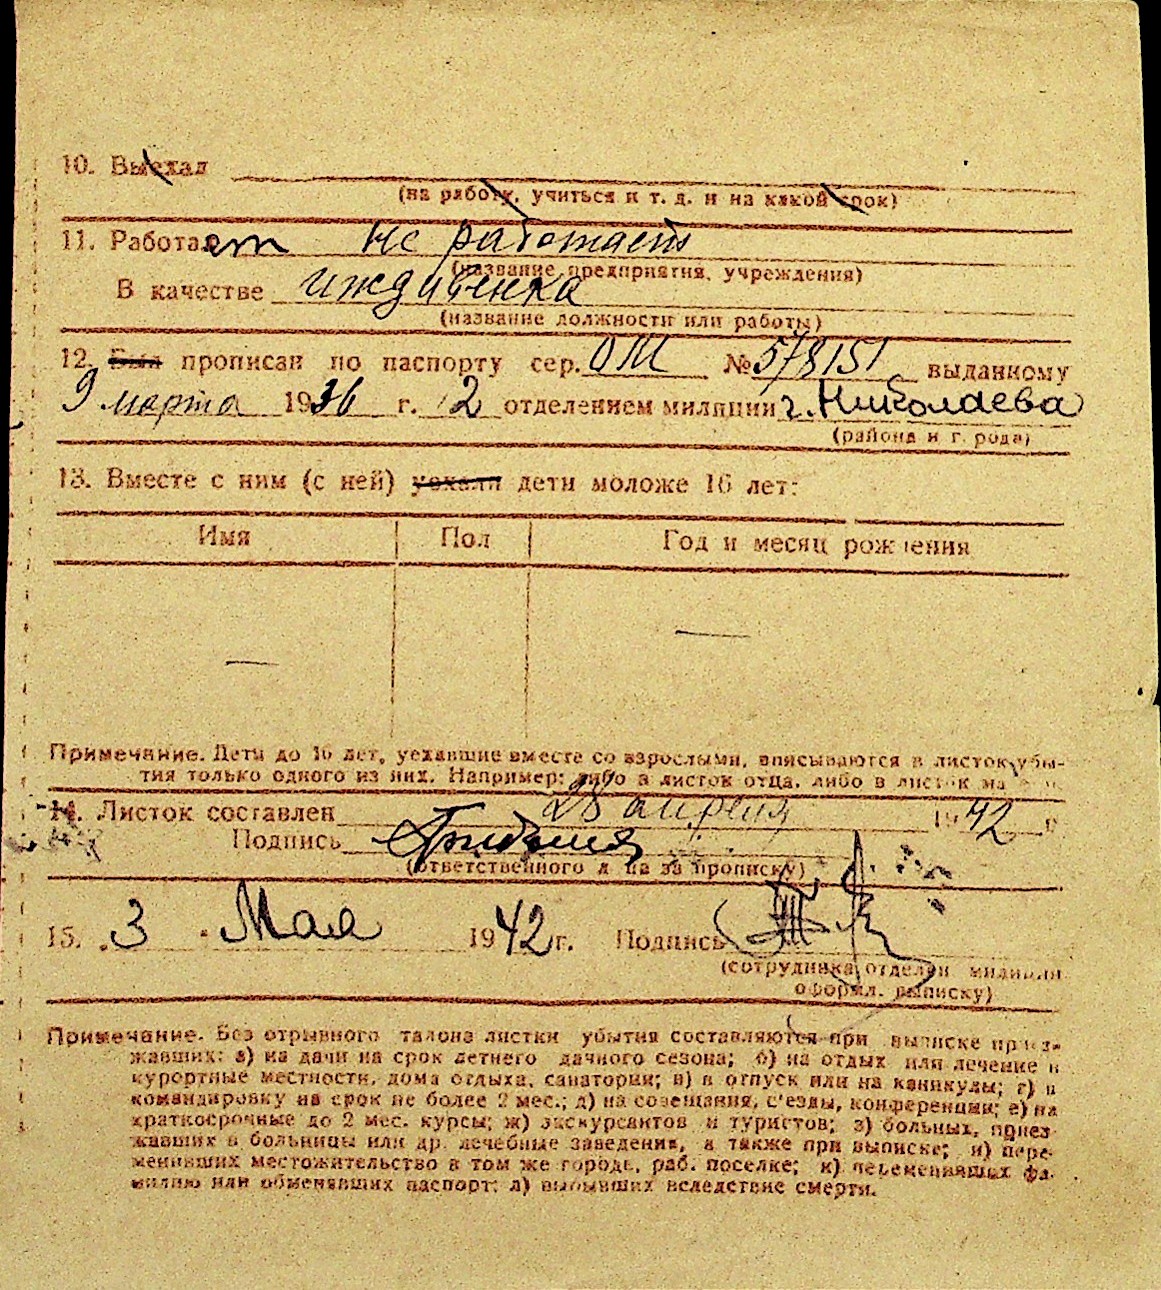 10. Выехал
(на работу, учиться и т. д. и на какой срок)
11. Работает не работает
(название предприятия, учреждения)
В качестве иждивенка
(название должности или работы)
12. Был прописан по паспорту сер. ОМ № 578151 выданному
9 марта 1936 г. 2 отделением милиции г. Николаева
(района и города)
13. Вместе с ним (с ней) уехали дети моложе 16 лет:
Имя Пол Год и месяц рождения
— —
Примечание. Дети до 16 лет, уехавшие вместе со взрослыми, вписываются в листок убы-
тия только одного из них. Например: либо в листок отца, либо в листок
14. Листок составлен 28 апреля 1942 г.
Подпись
(ответственного лица за прописку)
15. 3 Мая 1942 г. Подпись
(сотрудника отделен милиции
оформл. выписку)
Примечание. Без отрывного талона листки убытия составляются при выписке приез-
жавших: а) на дачи на срок летнего дачного сезона; б) на отдых или лечение в
курортные местности, дома отдыха, санатории; в) в отпуск или на каникулы; г) в
командировку на срок не более 2 мес.; д) на совещания, с'езды, конференции; е) на
краткосрочные до 2 мес. курсы; ж) экскурсантов и туристов; з) больных, приез-
жавших в больницы или др. лечебные заведения, а также при выписке; и) пере-
менивших местожительство в том же городе, раб. поселке; к) переменивших фа-
милию или обменявших паспорт; л) выбывших вследствие смерти.